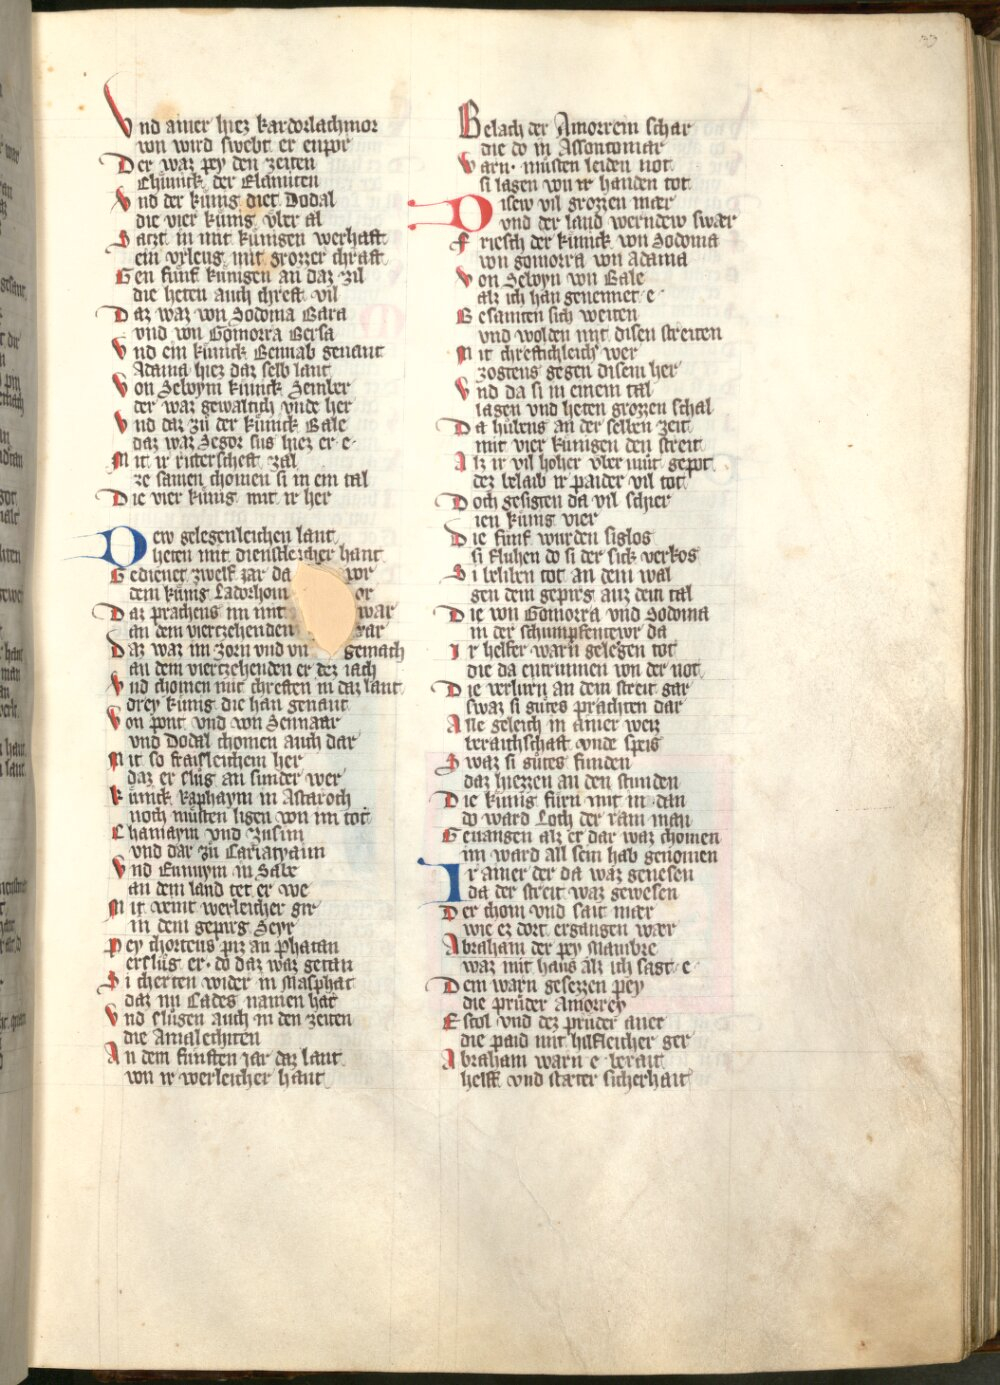 Vnd ainer hiez kardorlachmor
von wird swebt er enpor
Der waz pey den zeiten
Chünick der Elamiten
Vnd der künig diet Dodal
die vier künig vber al
Satzt in mit künigen werhaft
ein vrleug mit grozzer chraft
Gen fünf künigen an daz zil
die heten auch chreft vil
Daz waz von Sodoma Bara
vnd von Gomorra Bersa
Vnd ein künick Sennab genant
Adama hiez daz selb lant
Von Seboym künick Sember
der waz gewaltich vnde her
Vnd daz zu der künick Bale
daz waz Segor sus hiez er e
Mit ir ritterscheft zal
ze samen chomen si in em tal
Die vier künig mit ir her
Dew gelegenleichen lant
heten mit dienstleicher hant
Gedienet zwelf jar da vor
dem künig Ladorhom or
Daz prachens im mit war
an dem viertzehenden jar
Daz waz im zorn vnd vn gemach
an dem viertzehenden er dez jach
Vnd chomen mit chreften in daz lant
drey künig die han genant
Von pont vnd von Sennaar
vnd Dodal chomen auch dar
Mit so fraisleichem her
daz er slug an sunder wer
Künick Raphaym in Astaroch
noch müsten ligen von im tot
Chamaym vnd Zusim
vnd dar zu Cariatyaim
Vnd Ennuym in Sabe
an dem land tet er we
Mit veint werleicher gir
in dem gepirg Seyr
Pey chortens piz an Phatan
erslug er do daz waz getan
Si cherten wider in Masphat
daz nu Cades namen hat
Vnd slügen auch in den zeiten
die Amalechiten
An dem fünften jar daz lant
von ir werleicher hant
Belach der Amorrein schar
die do in Assontomar
Warn müsten leiden not
si lagen von ir handen tot
Disew vil grozzen mær
vnd der laud werndew swær
Friesch der künick von Sodoma
von gomorra von Adama
Von Seboyn von Bale
alz ich han genennet e
Besamten sich weiten
vnd wolden mit disen streiten
Mit chreftichleich wer
zogtens gegen disem her
Vnd da si in einem tal
lagen vnd heten grozzen schal
Da hübens an der selben zeit
mit vier künigen den streit
Alz ir vil hoher vber müt gepot
dez belaib ir paider vil tot
Doch gesigten da vil schier
ien künig vier
Die fünf wurden siglos
si fluhen do si der sick verkos
Si beliben tot an dem wal
gen dem gepirg auz dem tal
Die von Gomorra vnd Sodoma
in der schumpfentewr da
Ir helfer warn gelegen tot
die da entrunnen von der not
Die verlurn an dem streit gar
swaz si gütes prachten dar
Alle geleich in ainer weiz
beraithschaft vnde speis
Swaz si gütes funden
daz hiezzen an den stunden
Die künig fürn mit in dan
do ward Loth der rain man
Geuangen alz er dar waz chomen
im ward all sein hab genomen
Ir ainer der da waz genesen
da der streit waz gewesen
Der chom vnd sait mær
wie ez dort ergangen wær
Abraham der pey Mambre
waz mit haus alz ich sagt e
Dem warn gesezzen pey
die prüder Amorrey
Estol vnd dez prüder aner
die paid mit hilfleicher ger
Abraham warn e berait
helff vnd stæter sicherhait